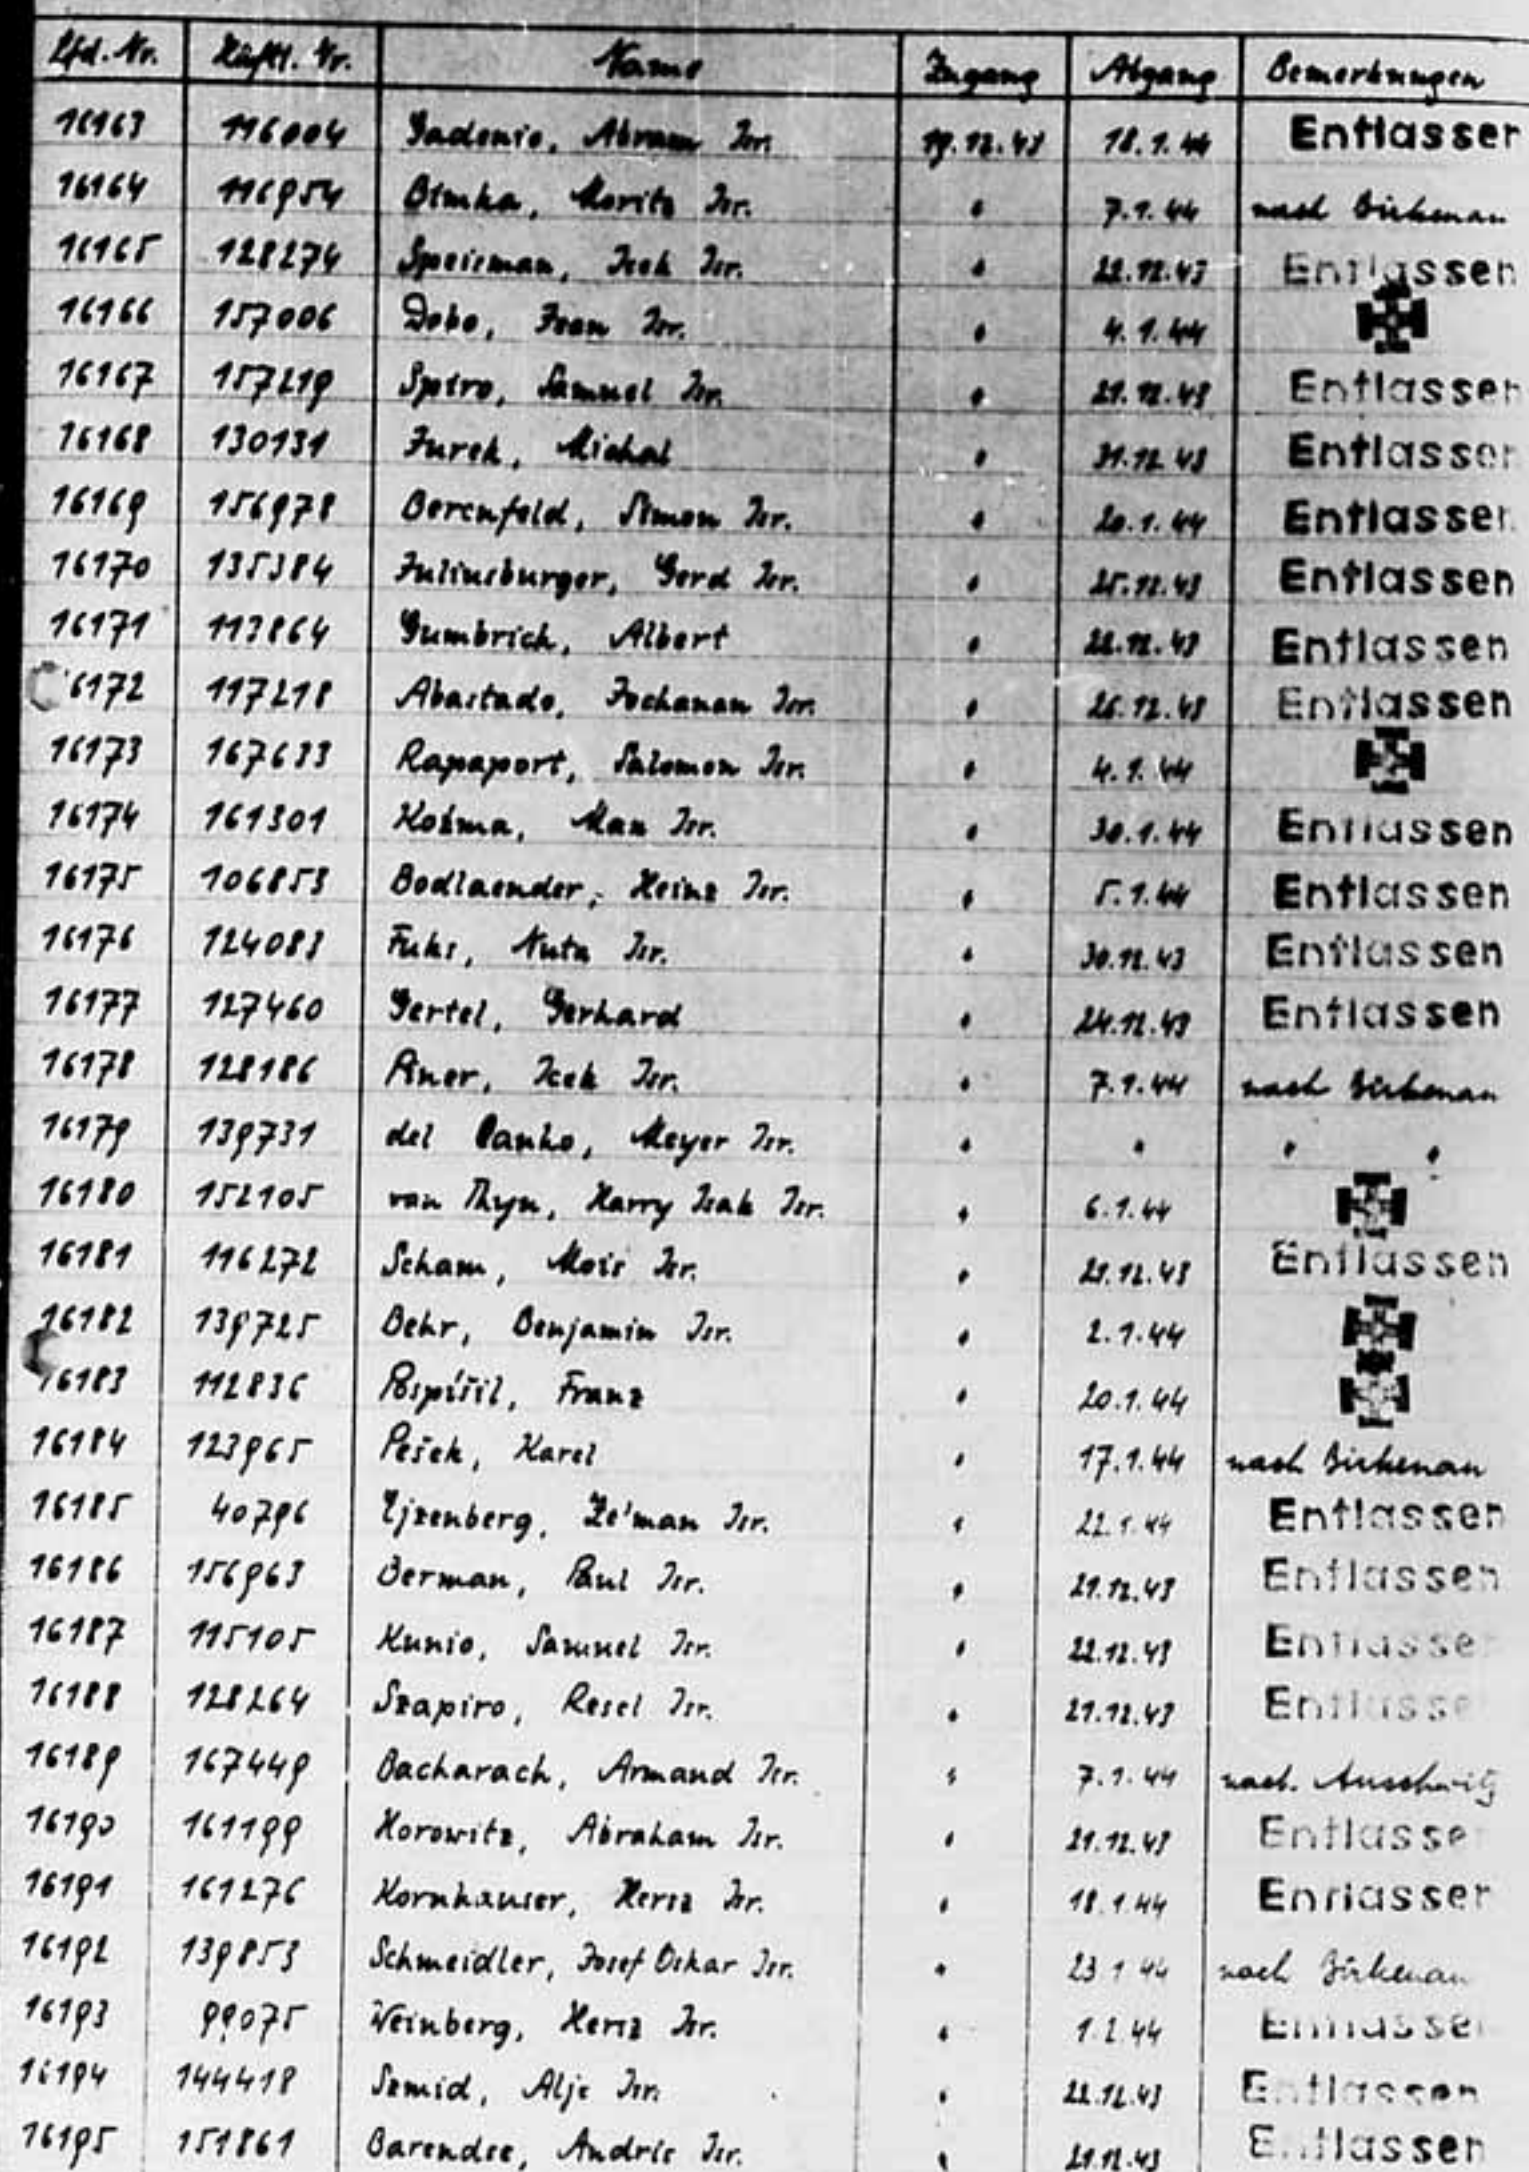 Lfd. Nr. Häftl. Nr. Name Zugang Abgang Bemerkungen
16163 116004 Gadenio, Abram Isr. 19.12.43 18.1.44 Entlassen
16164 116954 Bimka, Moritz Isr. " 7.1.44 nach Birkenau
16165 128274 Speisman, Icek Isr. " 22.12.43 Entlassen
16166 157006 Dobo, Ivan Isr. " 4.1.44
16167 157219 Spiro, Samuel Isr. " 21.12.43 Entlassen
16168 130131 Jurek, Michal " 31.12.43 Entlassen
16169 156978 Berenfeld, Simon Isr. " 20.1.44 Entlassen
16170 135384 Juliusburger, Gerd Isr. " 25.12.43 Entlassen
16171 113864 Gumbrich, Albert " 22.12.43 Entlassen
16172 117218 Abastado, Jochanan Isr. " 26.12.43 Entlassen
16173 167633 Rapaport, Salomon Isr. " 4.1.44
16174 161301 Kožma, Max Isr. " 30.1.44 Entlassen
16175 106853 Bodlaender, Heinz Isr. " 5.1.44 Entlassen
16176 124083 Fuks, Nuta Isr. " 30.12.43 Entlassen
16177 127460 Gertel, Gerhard " 24.12.43 Entlassen
16178 128186 Piner, Icek Isr. " 7.1.44 nach Birkenau
16179 139731 del Canho, Meyer Isr. " " " "
16180 152105 van Thyn, Harry Isak Isr. " 6.1.44
16181 116272 Scham, Mois Isr. " 21.12.43 Entlassen
16182 139725 Behr, Benjamin Isr. " 2.1.44
16183 112836 Pospíšil, Franz " 20.1.44
16184 123965 Pešek, Karel " 17.1.44 nach Birkenau
16185 40796 Ejzenberg, Ze'man Isr. " 22.1.44 Entlassen
16186 156963 Berman, Paul Isr. " 21.12.43 Entlassen
16187 115105 Kunio, Samuel Isr. " 22.12.43 Entlasse
16188 128264 Szapiro, Resel Isr. " 21.12.43 Entlasse
16189 167449 Bacharach, Armand Isr. " 7.1.44 nach Auschwitz
16190 161199 Horowitz, Abraham Isr. " 21.12.43 Entlasse
16191 161276 Kornhauser, Hersz Isr. " 18.1.44 Entlassen
16192 139853 Schmeidler, Josef Oskar Isr. " 23 1 44 nach Birkenau
16193 99075 Weinberg, Hersz Isr. " 1.2.44 Entlasse
16194 144418 Szmid, Alje Isr. " 22.12.43 Entlassen
16195 151861 Barendse, Andris Isr. " 21.12.43 Entlassen